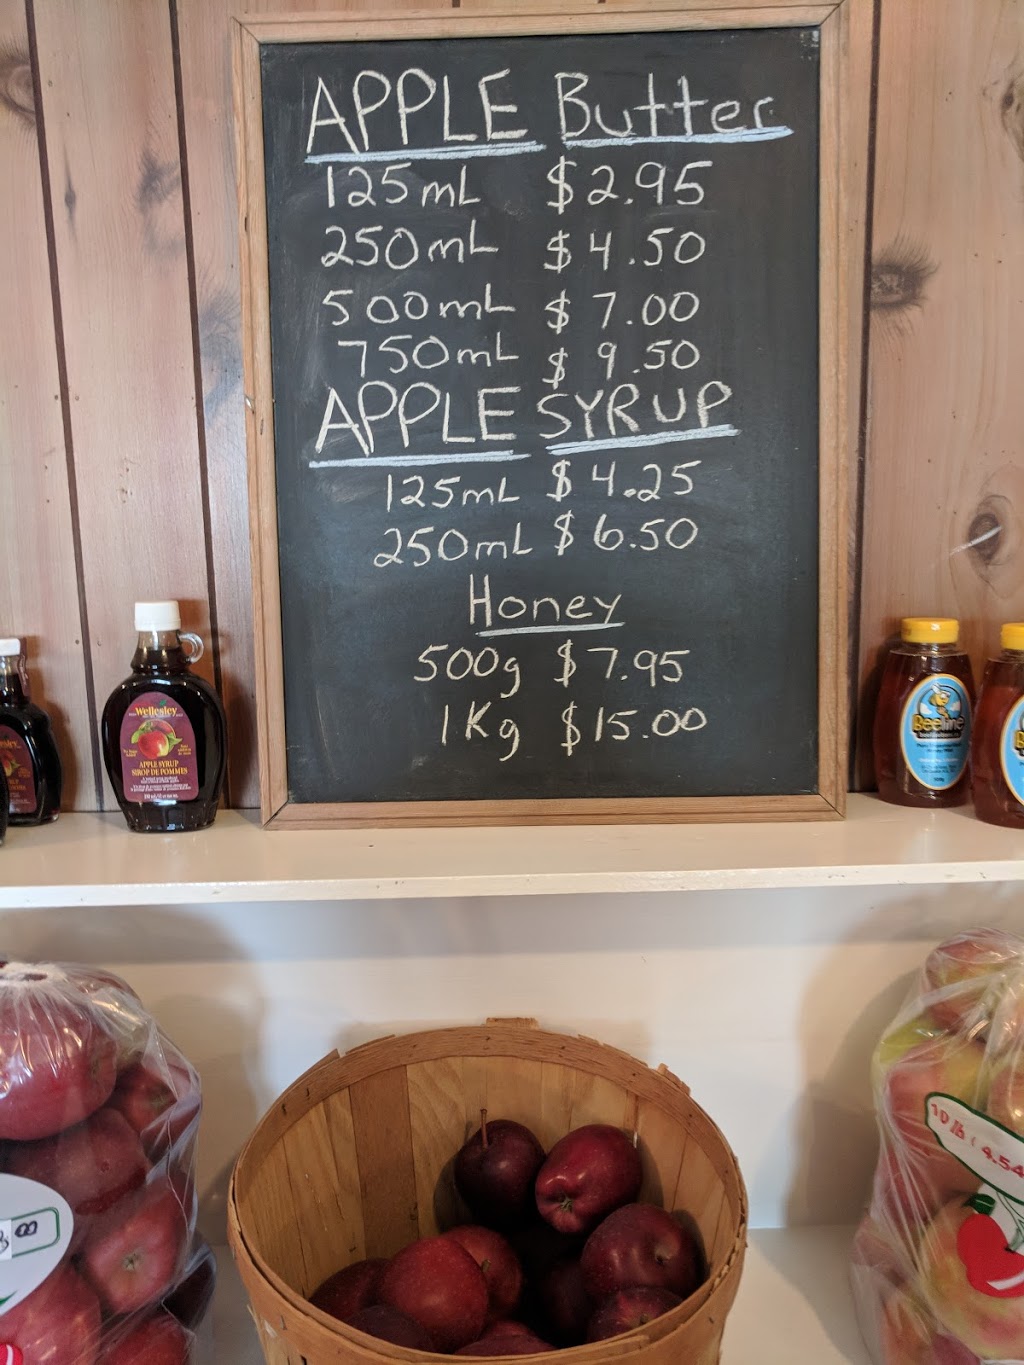 APPLE Butter
125mL $2.95
250mL $4.50
500mL $7.00
750mL $9.50
APPLE SYRUP
125mL $4.25
250mL $6.50
Honey
500g $7.95
1Kg $15.00
Wellesley
APPLE SYRUP
SIROP DE POMMES
Beeline
10 lb (4.54
8